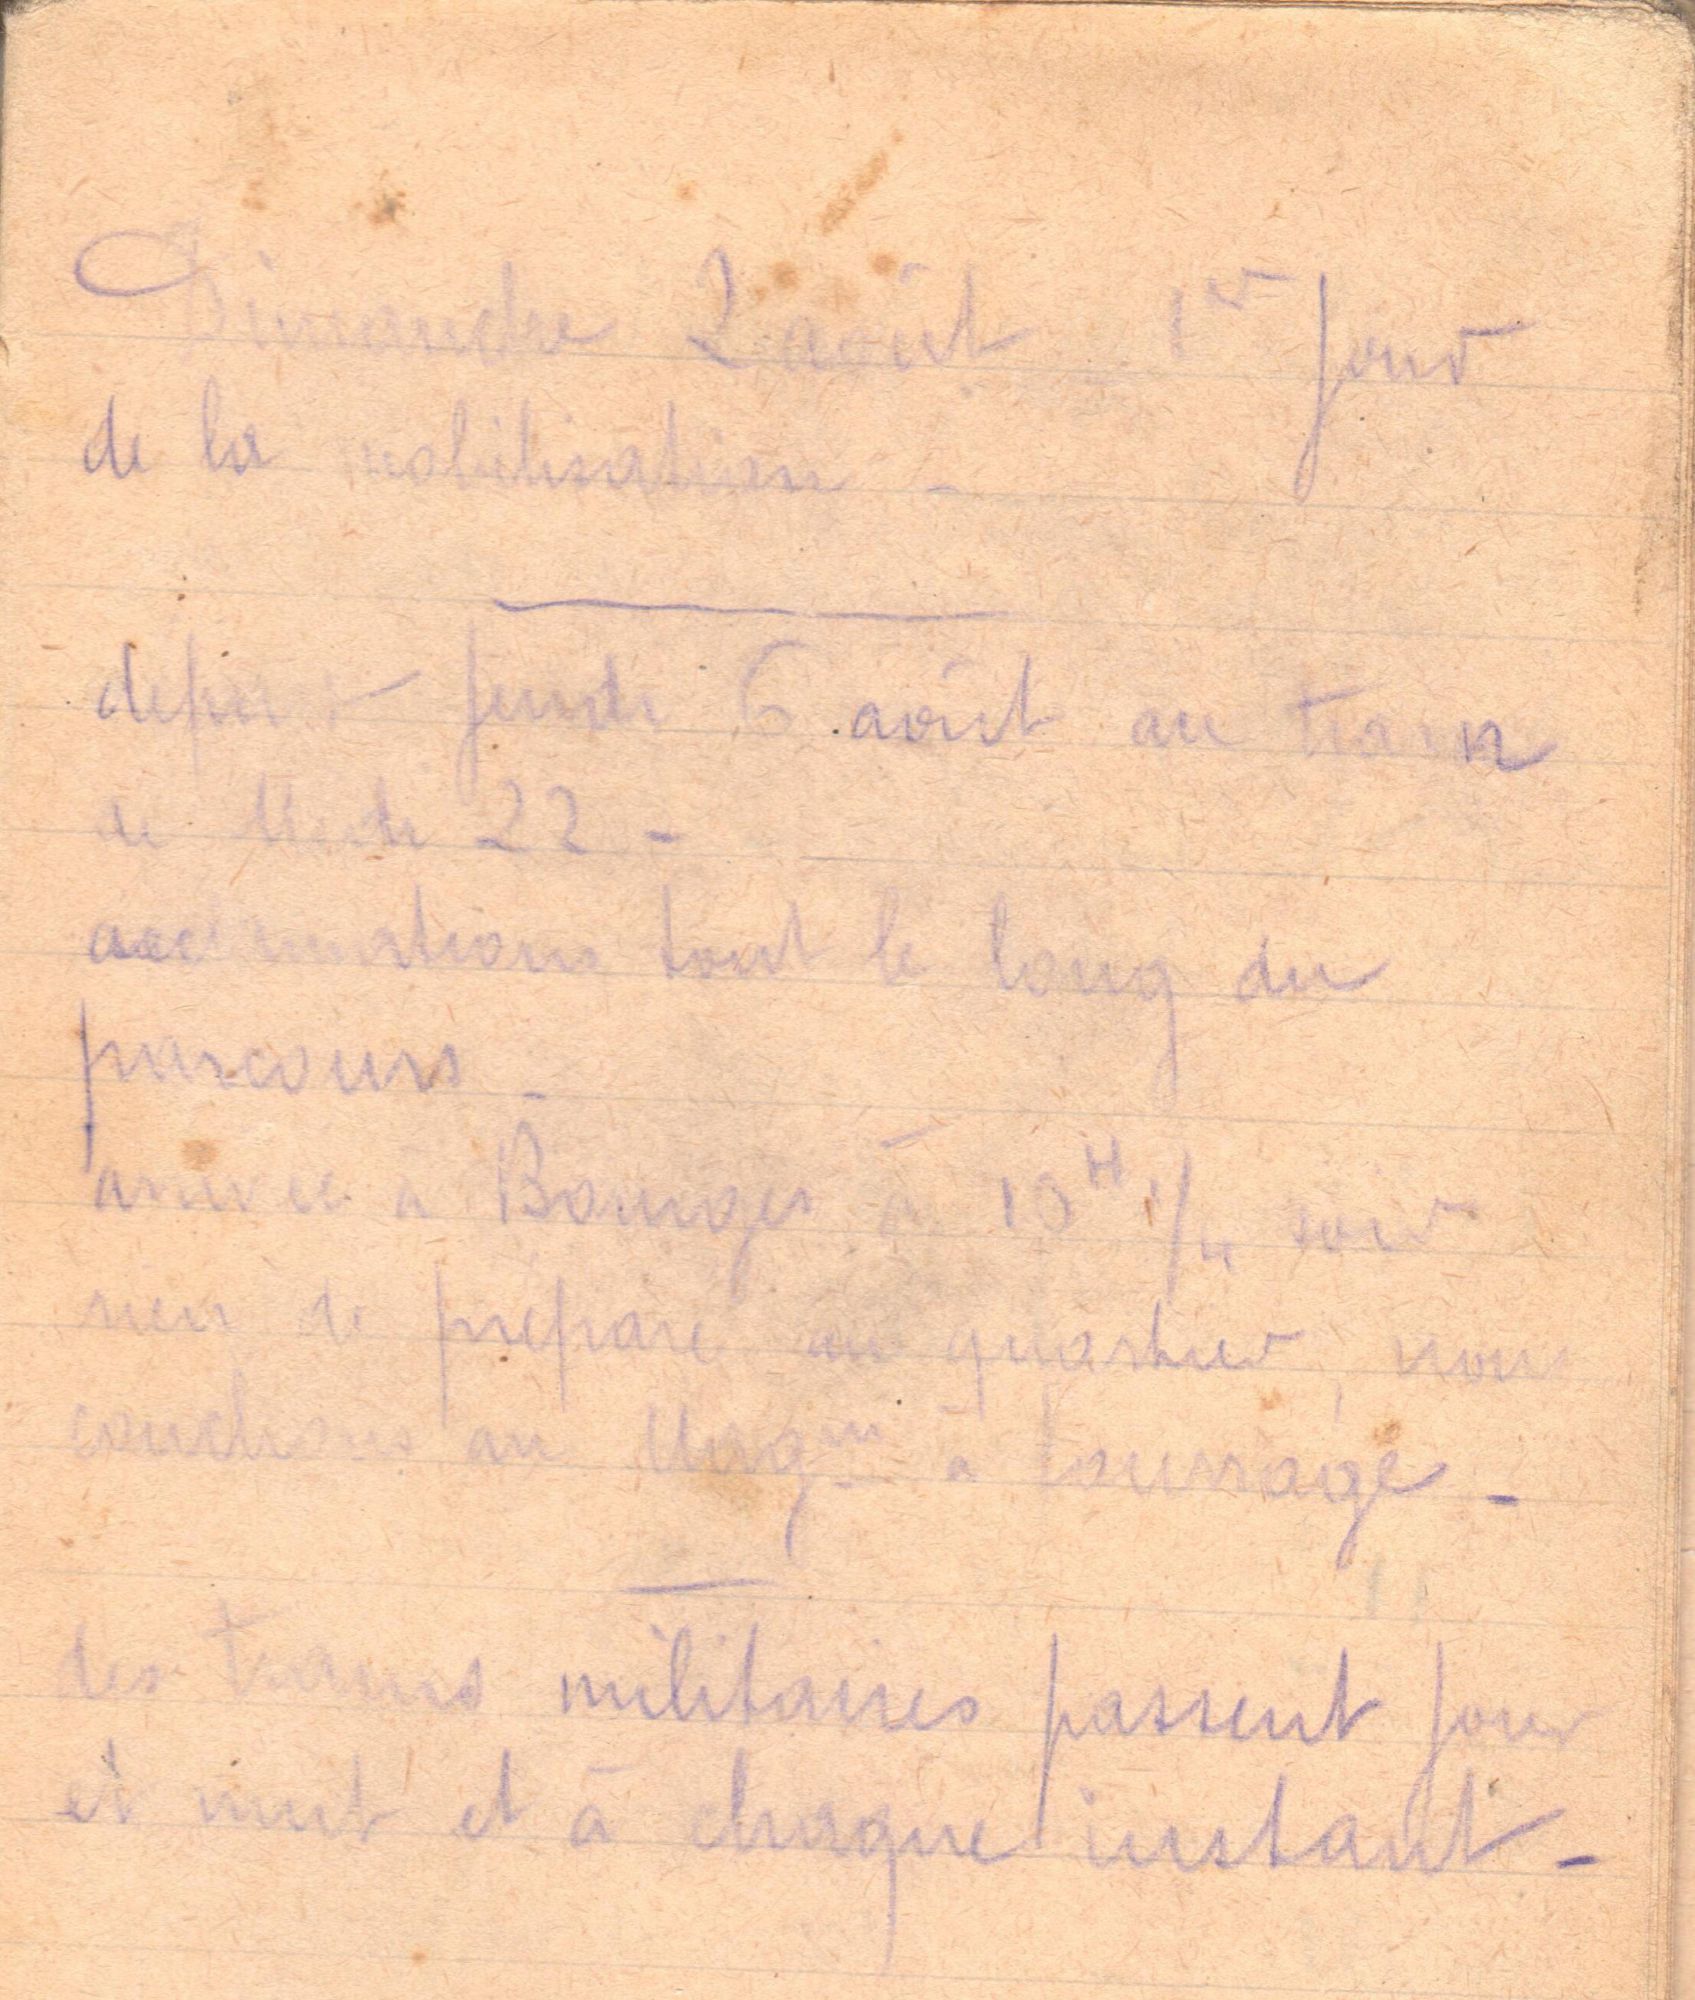 Dimanche 2 août 1er jour
de la mobilisation -
départ jeudi 6 août au train
de Midi 22 -
acclamations tout le long du
parcours -
arrivée à Bourges à 10H 1/4 soir
rien de préparé au quartier, nous
couchons au Magin à fourrage -
des trains militaires passent jour
et nuit et à chaque instant -